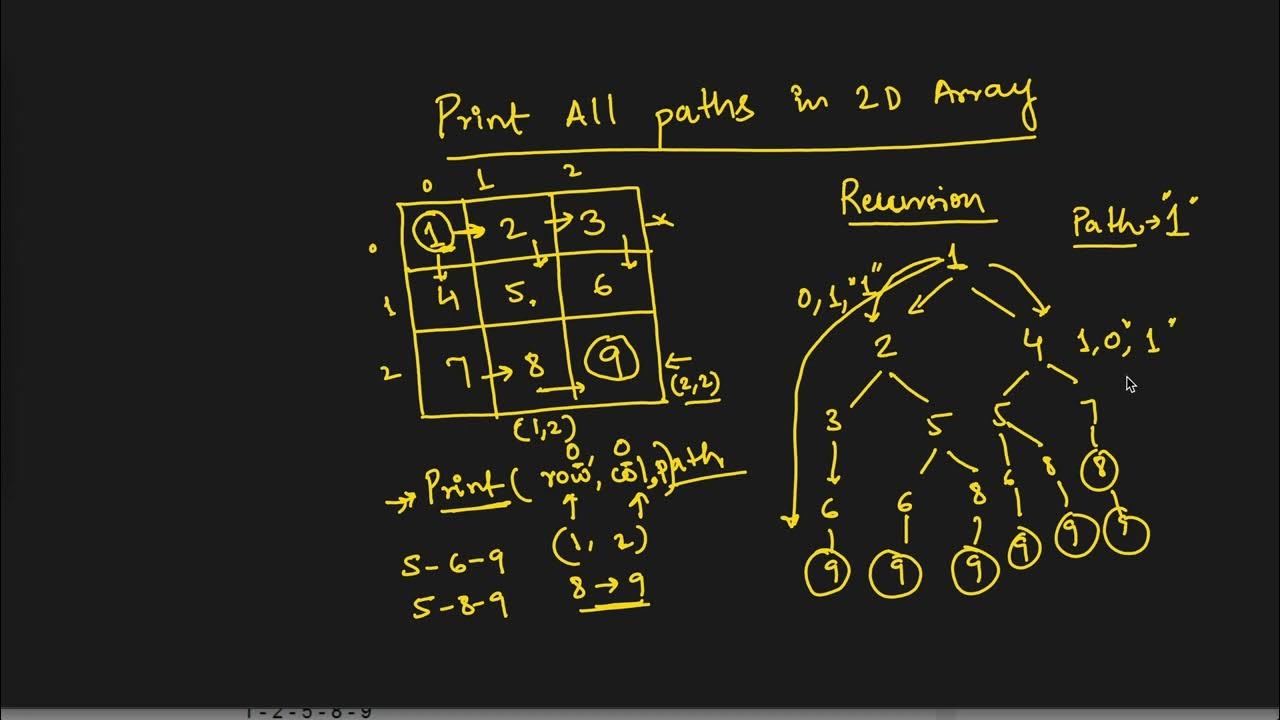 Print All paths in 2D Array
0 1 2
0 1 → 2 → 3 x
1 4 5. 6
2 7 → 8 → 9 ←
(2,2)
(1,2)
0 0
→ Print ( row, col, path
(1, 2)
5-6-9
8 → 9
5-8-9
Recursion
Path → "1"
1
0, 1, "1"
2 4 1, 0, "1"
3 5 5 7
6 6 8 6 8 8
9 9 9 9 9 9
1-2-5-8-9